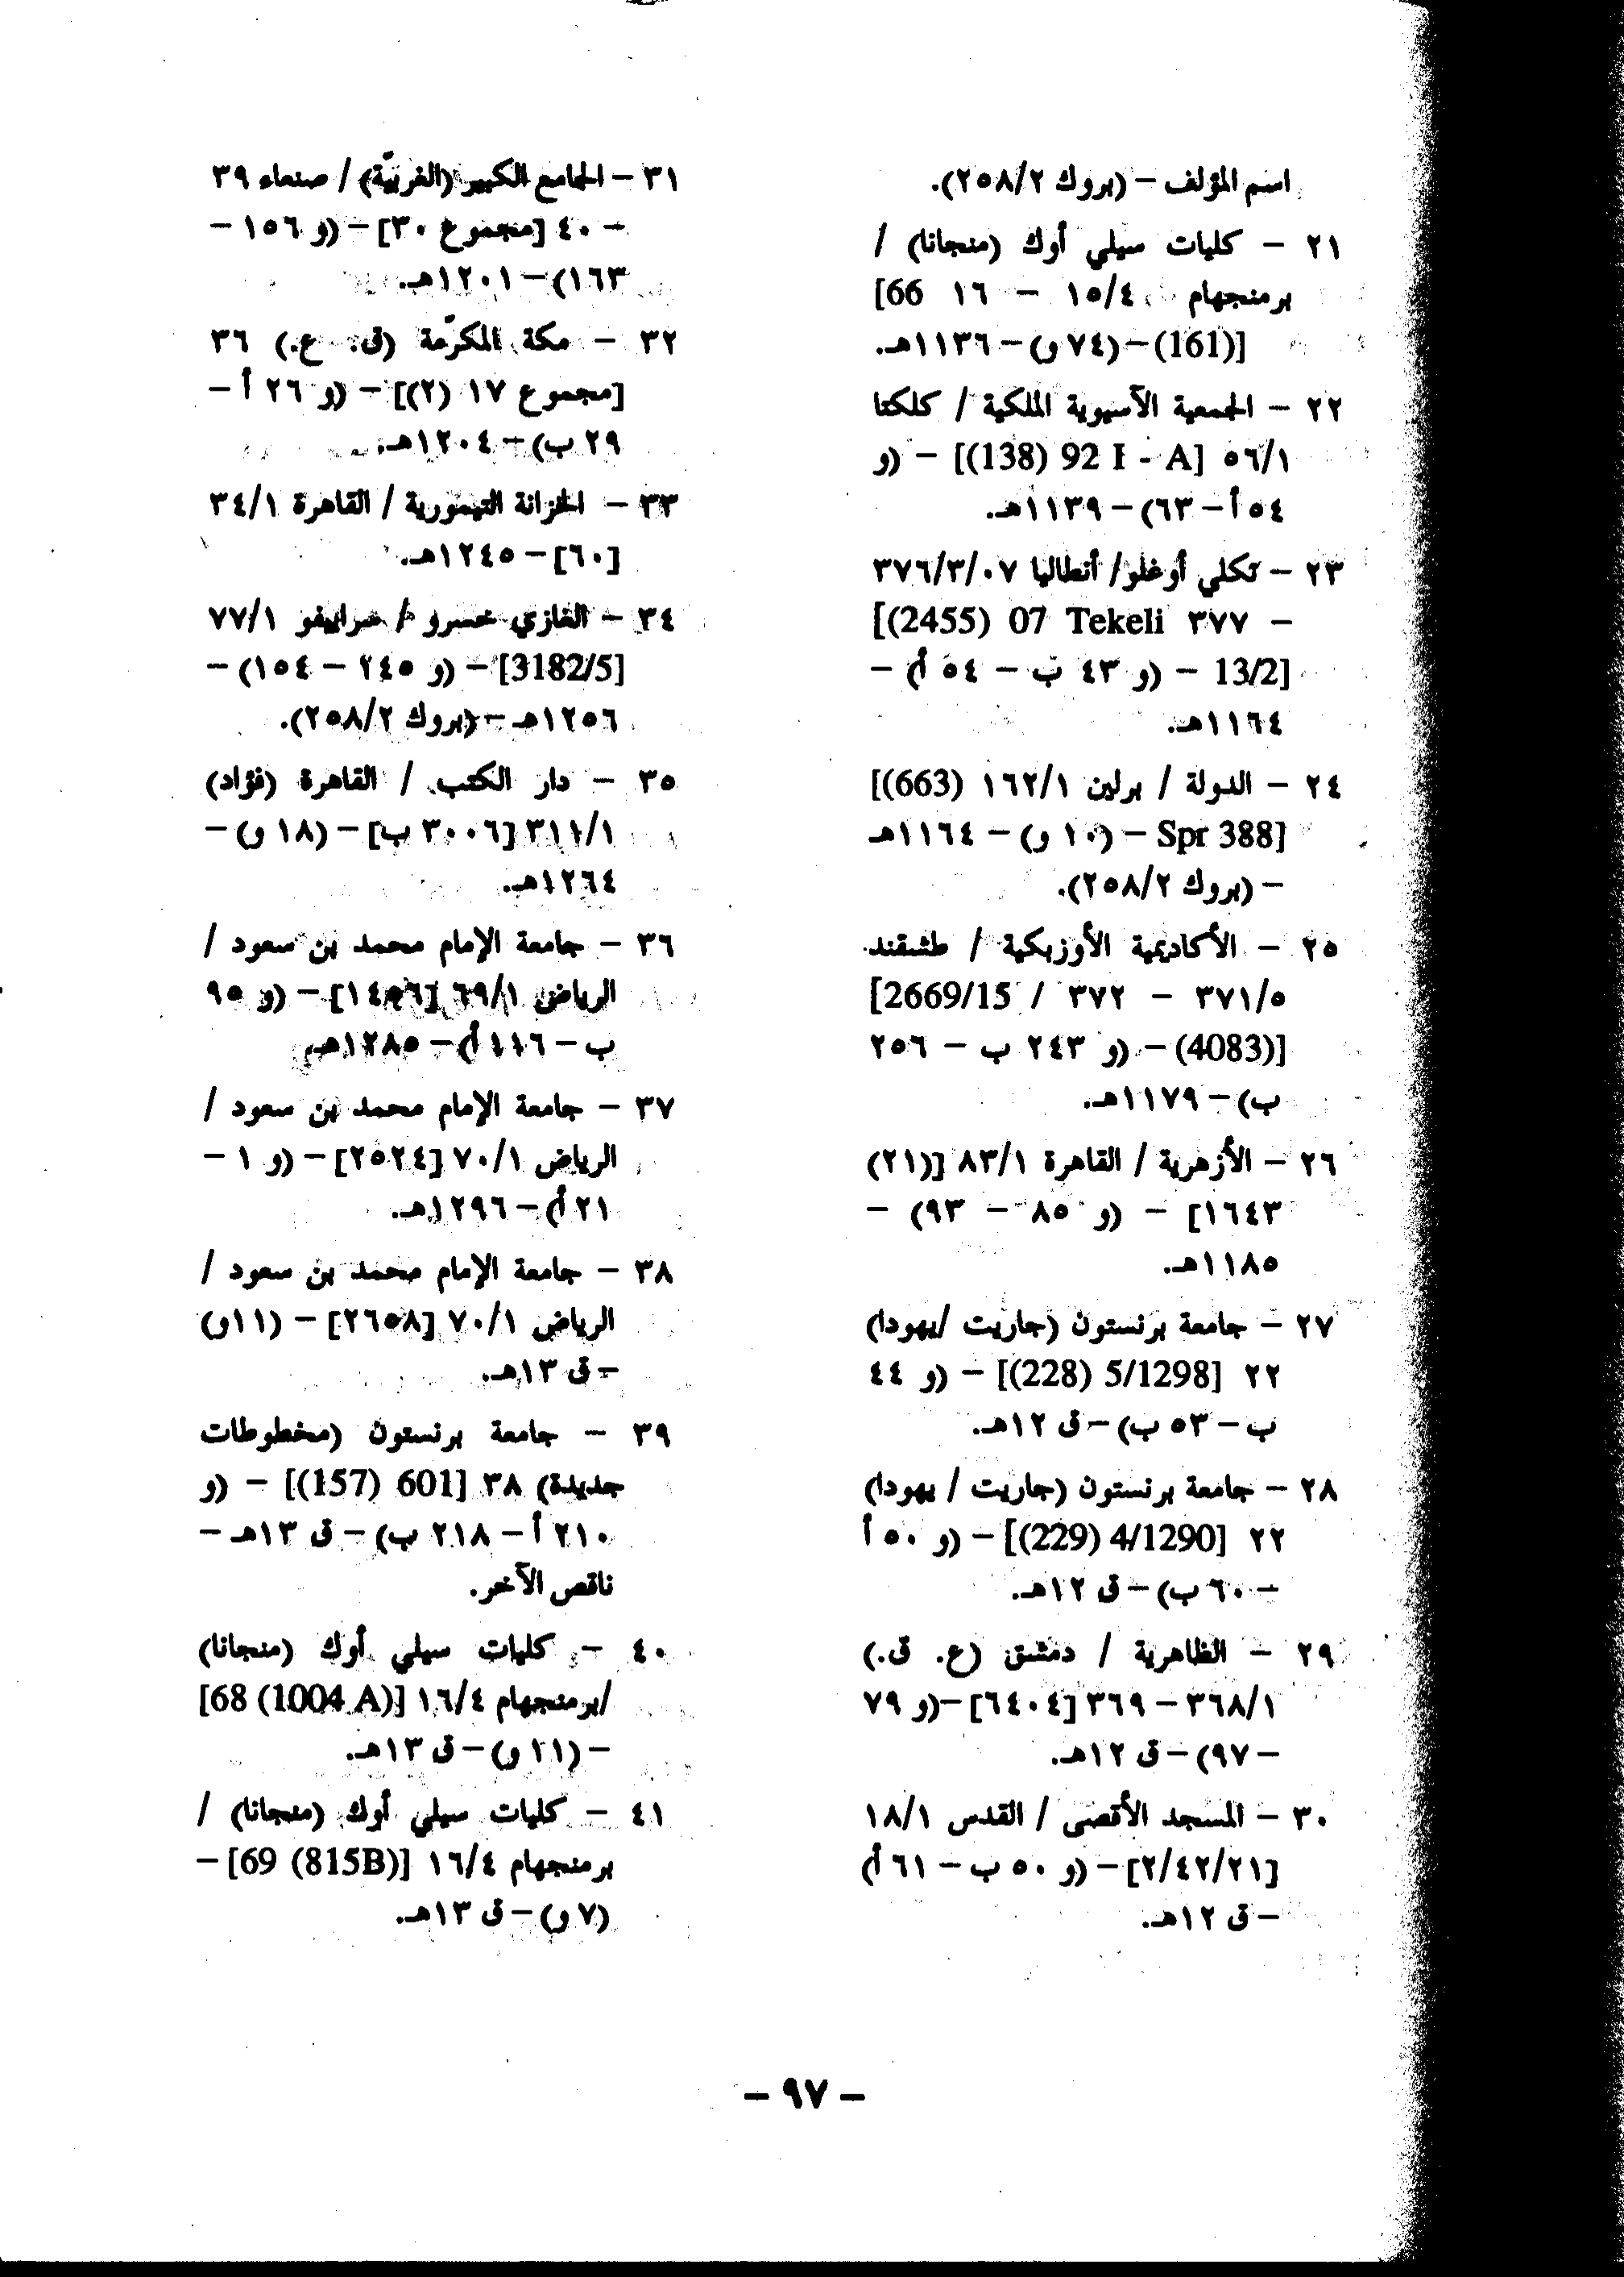 اسم المؤلف – (بروك ٢٥٨/٢).
٢١ – كليات سيلي أوك (منجانا) /
برمنجهام ١٥/٤ – ١٦ [66
(161)] – (٧٤ و) – ١١٣٦هـ.
٢٢ – الجمعية الآسيوية الملكية / كلكتا
٥٦/١ [92 I - A (138)] – (و
٥٤ أ – ٦٣) – ١١٣٩هـ.
٢٣ – تكلي أوغلو/ أنطاليا ٣٧٦/٣/٠٧
– ٣٧٧ [(2455) 07 Tekeli
13/2] – (و ٤٣ ب – ٥٤ أ) –
١١٦٤هـ.
٢٤ – الدولة / برلين ١٦٢/١ [(663)
Spr 388] – (١٠ و) – ١١٦٤هـ
– (بروك ٢٥٨/٢).
٢٥ – الأكاديمية الأوزبكية / طشقند
٣٧١/٥ – ٣٧٢ / [2669/15
(4083)] – (و ٢٤٣ ب – ٢٥٦
ب) – ١١٧٩هـ.
٢٦ – الأزهرية / القاهرة ٨٣/١ [(٢١)
١٦٤٣] – (و ٨٥ – ٩٣) –
١١٨٥هـ.
٢٧ – جامعة برنستون (جاريت /يهودا)
٢٢ [5/1298 (228)] – (و ٤٤
ب – ٥٣ ب) – ق ١٢هـ.
٢٨ – جامعة برنستون (جاريت / يهودا)
٢٢ [4/1290 (229)] – (و ٥٠ أ
– ٦٠ ب) – ق ١٢هـ.
٢٩ – الظاهرية / دمشق (ع. ق.)
٣٦٨/١ – ٣٦٩ [٦٤٠٤] –(و ٧٩
– ٩٧) – ق ١٢هـ.
٣٠ – المسجد الأقصى / القدس ١٨/١
[٢/٤٢/٢١] – (و ٥٠ ب – ٦١ أ)
– ق ١٢هـ.
٣١ – الجامع الكبير (الغربيّة) / صنعاء ٣٩
– ٤٠ [مجموع ٣٠] – (و ١٥٦ –
١٦٣) – ١٢٠١هـ.
٣٢ – مكة المكرّمة (ق. ع.) ٣٦
[مجموع ١٧ (٢)] – (و ٢٦ أ –
٢٩ ب) – ١٢٠٤هـ.
٣٣ – الخزانة التيمورية / القاهرة ٣٤/١
[٦٠] – ١٢٤٥هـ.
٣٤ – الغازي خسرو / سراييفو ٧٧/١
[3182/5] – (و ٢٤٥ – ١٥٤) –
١٢٥٦هـ – (بروك ٢٥٨/٢).
٣٥ – دار الكتب / القاهرة (فؤاد)
٣١١/١ [٣٠٠٦ ب] – (١٨ و) –
١٢٦٤هـ.
٣٦ – جامعة الإمام محمد بن سعود /
الرياض ٦٩/١ – (و ٩٥
ب – ١١٦ أ) – ١٢٨٥هـ.
٣٧ – جامعة الإمام محمد بن سعود /
الرياض ٧٠/١ [٢٥٢٤] – (و ١ –
٢١ أ) – ١٢٩٦هـ.
٣٨ – جامعة الإمام محمد بن سعود /
الرياض ٧٠/١ [٢٦٥٨] – (١١و)
– ق ١٣هـ.
٣٩ – جامعة برنستون (مخطوطات
جديدة) ٣٨ [601 (157)] – (و
٢١٠ أ – ٢١٨ ب) – ق ١٣هـ –
ناقص الآخر.
٤٠ – كليات سيلي أوك (منجانا)
/برمنجهام ١٦/٤ [68 (1004 A)]
– (٢١ و) – ق ١٣هـ.
٤١ – كليات سيلي أوك (منجانا) /
برمنجهام ١٦/٤ [69 (815B)] –
(٧ و) – ق ١٣هـ.
– ٩٧ –